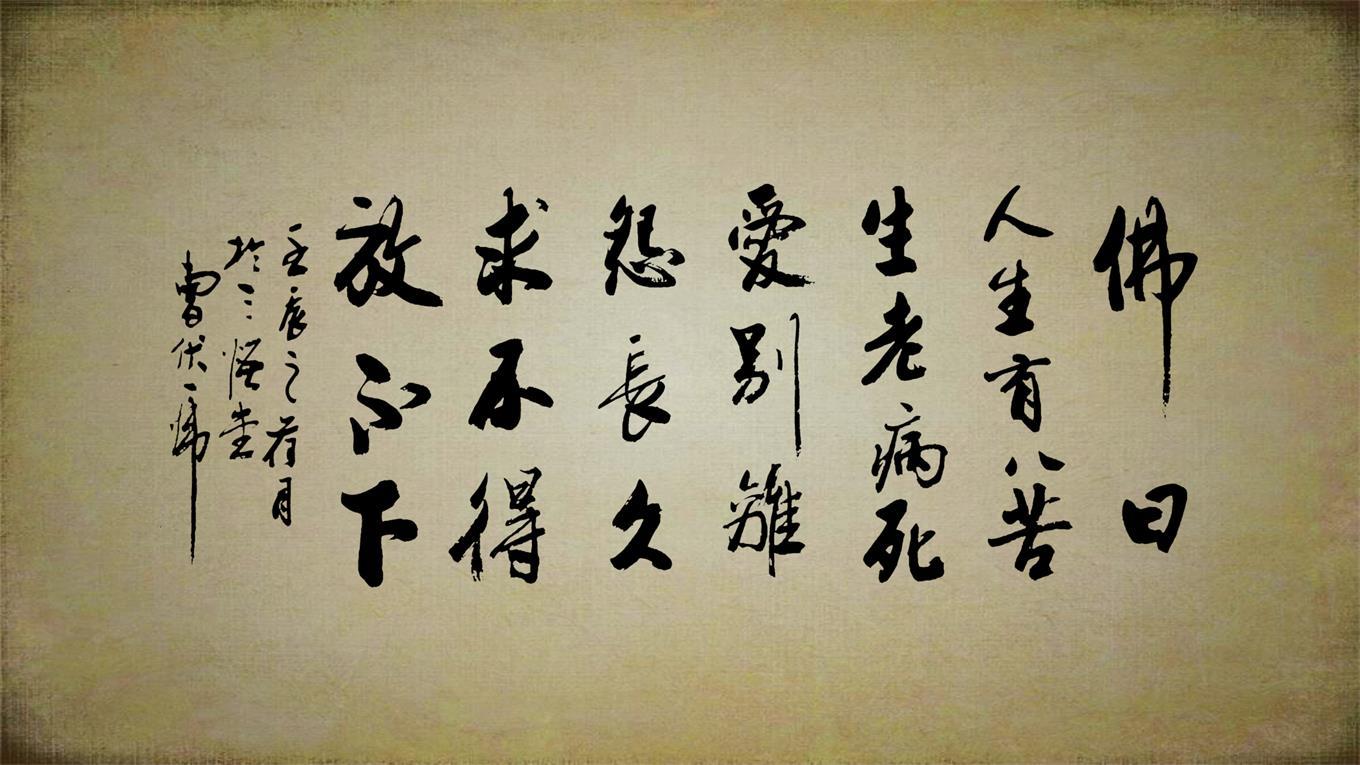 佛曰
人生有八苦
生老病死
愛別離
怨長久
求不得
放不下
壬辰之荷月
於三悟堂
曹伏一